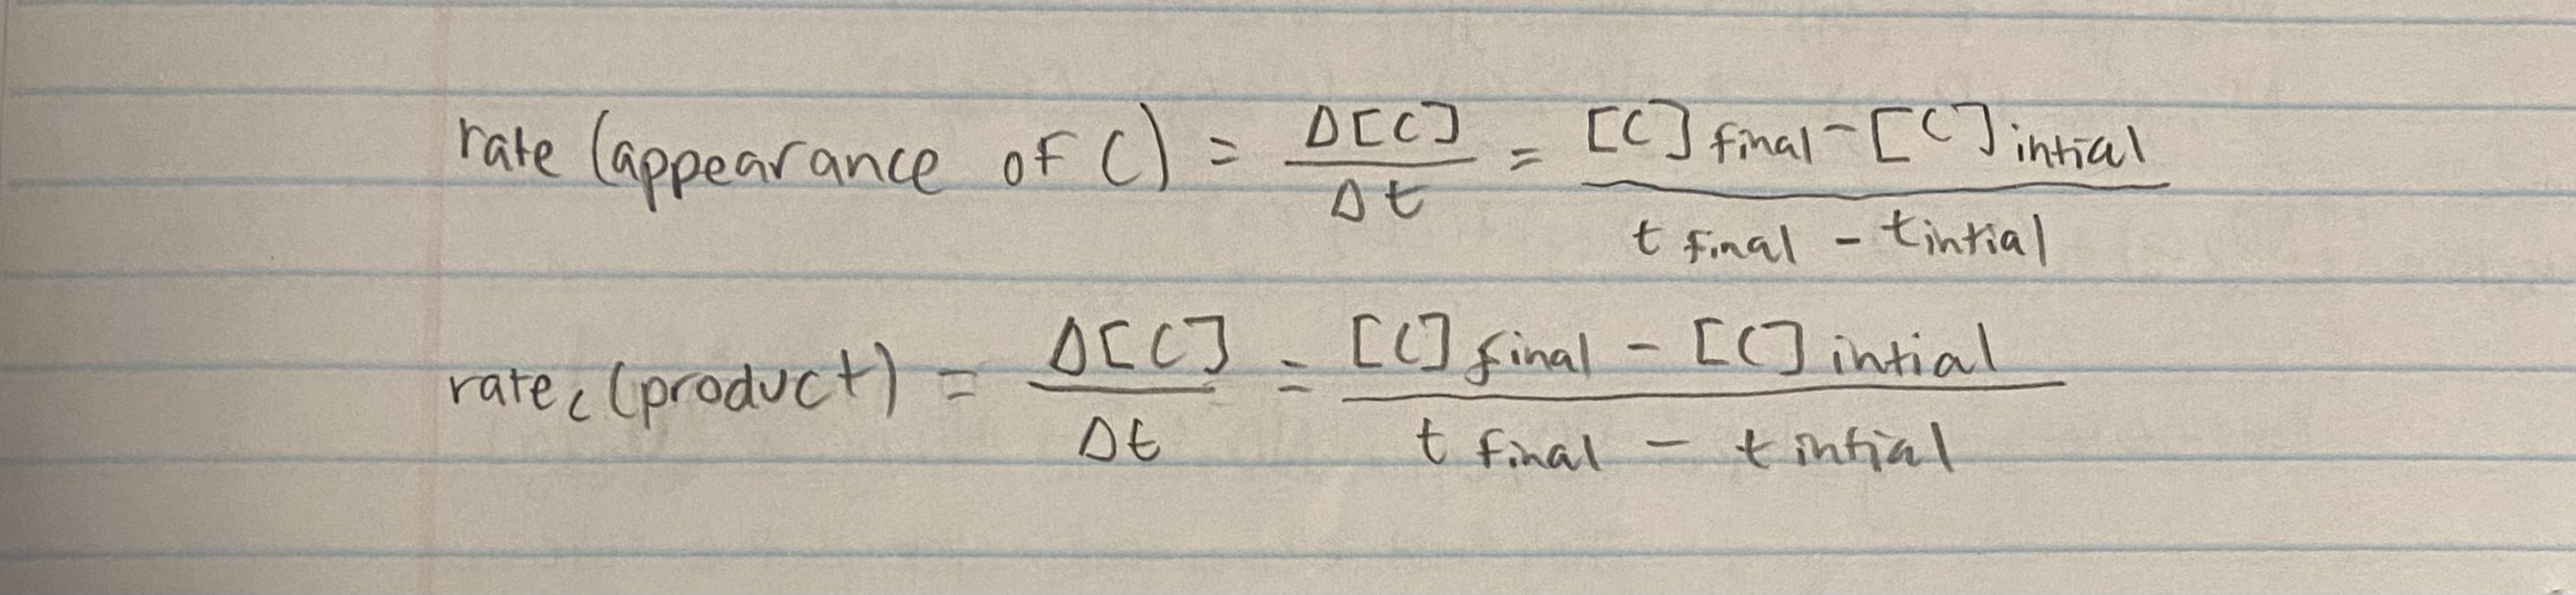 rate (appearance of C) = Δ[C]/Δt = [C] final - [C] intial / t final - t intial
rate c (product) = Δ[C]/Δt = [C] final - [C] intial / t final - t intial